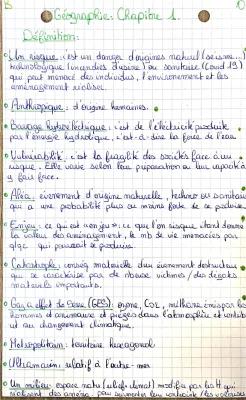 Géographie: Chapitre 1.
Définition:
Un risque: c'est un danger d'origines naturel (séisme...)
technologique (incendies d'usine) ou sanitaire (Covid 19)
qui peut menacé des individus, l'environnement et les
aménagement réaliser.
Anthropique: d'origine humaines.
Barrage hydroélectrique: c'est de l'électricité produite
par l'énergie hydrolique, c'est-à-dire la force de l'eau
Vulnérabilité: c'est la fragilité des sociétés face à un
risque. Elle varie selon leur préparation ou leur capacité à
y fair face.
Aléa: évènement d'origine naturelle, techno ou sanitaire
qui a une probabilité plus ou moins forte de se produire.
Enjeu: ce qui est "en jeu": ce que l'on risque étant donné
des aménagement, le nb de vie menacées par
qlqc qui pourrait se produire.
Catastrophe: conséq matérielle d'un évènement destructeur
qui se caractérise par de nbreuse victimes / des dégats
matériels importants.
Gaz à effet de Serre (GES): ozone, CO2, méthane émis par les
Hommes d'atmosphère et piégés dans l'atmosphère et
au changement climatique.
Métropolitain: territoire hexagonal
Ultramarin: relatif à l'outre-mer
Un milieu: espace natu (relief, climat) modifié par les H qui
réalisent des aména. pour